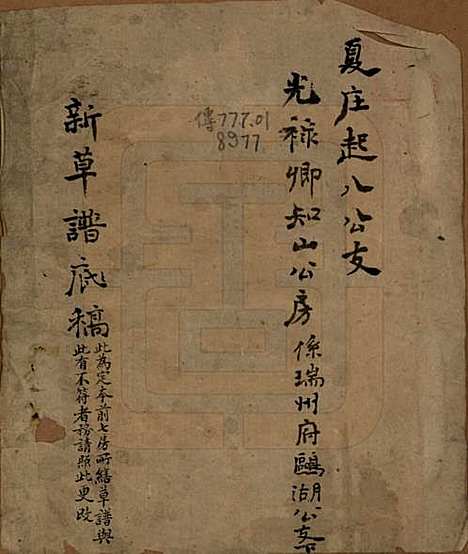 夏庄起八公支
光祿卿知山公房係瑞州府鷗湖公支下
傳777.01
8977
新草譜底稿
此為定本前七房所繕草譜與
此有不符者務請照此更改